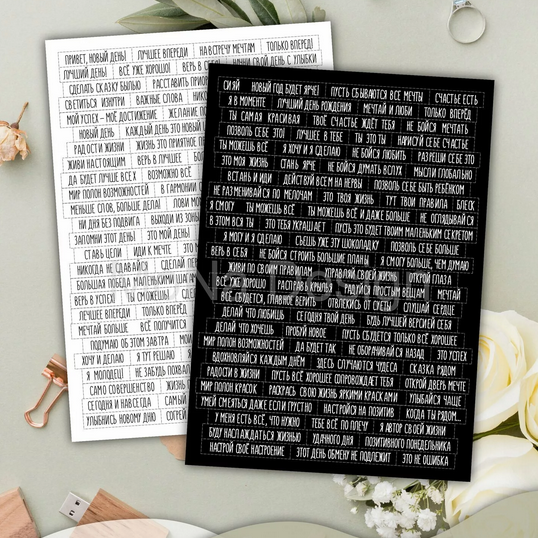 ПРИВЕТ, НОВЫЙ ДЕНЬ! ЛУЧШЕЕ ВПЕРЕДИ НА ВСТРЕЧУ МЕЧТАМ ТОЛЬКО ВПЕРЕД!
ЛУЧШИЙ ДЕНЬ! ВСЁ УЖЕ ХОРОШО! ВЕРЬ В НАЧНИ СВОЙ ДЕНЬ С УЛЫБКИ
СДЕЛАТЬ СКАЗКУ БЫЛЬЮ РАСПРАВИТЬ
СВЕТИТЬСЯ ИЗНУТРИ ВАЖНЫЕ СЛОВА
МОЙ УСПЕХ - МОЁ ДОСТИЖЕНИЕ ЖЕЛАНИЕ
НОВЫЙ ДЕНЬ КАЖДЫЙ ДЕНЬ ЭТО НОВЫЙ
РАДОСТИ ЖИЗНИ ЖИЗНЬ ЭТО ПРИЯТНОЕ
ЖИВИ НАСТОЯЩИМ ВЕРЬ В ЛУЧШЕЕ
ДА БУДЕТ ЛУЧШЕ ВСЕХ ВОЗМОЖНО ВСЁ
МИР ПОЛОН ВОЗМОЖНОСТЕЙ В ГАРМОНИИ
МЕНЬШЕ СЛОВ, БОЛЬШЕ ДЕЛА! ЛОВИ
НИ ДНЯ БЕЗ ПОДВИГА ВЫХОДИ ИЗ ЗОНЫ
ЗАПОМНИ ЭТОТ ДЕНЬ ЭТО МОЙ ДЕНЬ!
СТАВЬ ЦЕЛИ ИДИ К МЕЧТЕ ЭТО
НИКОГДА НЕ СДАВАЙСЯ СДЕЛАЙ
БОЛЬШАЯ ПОБЕДА МАЛЕНЬКИМИ ШАГАМИ
ВЕРЬ В УСПЕХ! ТЫ СМОЖЕШЬ!
ЛУЧШЕЕ ВПЕРЕДИ ТОЛЬКО ВПЕРЁД
МЕЧТАЙ БОЛЬШЕ ВСЁ ПОЛУЧИТСЯ
ПОДУМАЮ ОБ ЭТОМ ЗАВТРА
ХОЧУ И ДЕЛАЮ Я ТУТ РЕШАЮ
Я МОЛОДЕЦ! НЕ ЗАБУДЬ
САМО СОВЕРШЕНСТВО ЖИЗНЬ
СЕГОДНЯ И НАВСЕГДА САМЫЙ
УЛЫБНИСЬ НОВОМУ ДНЮ СОГРЕЙ
СИЯЙ НОВЫЙ ГОД БУДЕТ ЯРЧЕ! ПУСТЬ СБЫВАЮТСЯ ВСЕ МЕЧТЫ СЧАСТЬЕ ЕСТЬ
Я В МОМЕНТЕ ЛУЧШИЙ ДЕНЬ РОЖДЕНИЯ МЕЧТАЙ И ЛЮБИ ТОЛЬКО ВПЕРЁД
ТЫ САМАЯ КРАСИВАЯ ТВОЁ СЧАСТЬЕ ЖДЁТ ТЕБЯ НЕ БОЙСЯ МЕЧТАТЬ
ПОЗВОЛЬ СЕБЕ ЭТО! ЛУЧШЕЕ В ТЕБЕ ТЫ ЭТО ТЫ НАРИСУЙ СЕБЕ СЧАСТЬЕ
ТЫ МОЖЕШЬ ВСЁ Я ХОЧУ И Я СДЕЛАЮ НЕ БОЙСЯ ЛЮБИТЬ РАЗРЕШИ СЕБЕ ЭТО
ЭТО МОЯ ЖИЗНЬ СТАНЬ ЯРЧЕ НЕ БОЙСЯ ДУМАТЬ ВСЛУХ МЫСЛИ ГЛОБАЛЬНО
ВСТАНЬ И ИДИ ДЕЙСТВУЙ ВСЕМ НА НЕРВЫ ПОЗВОЛЬ СЕБЕ БЫТЬ РЕБЁНКОМ
НЕ РАЗМЕНИВАЙСЯ ПО МЕЛОЧАМ ЭТО ТВОЯ ЖИЗНЬ ТУТ ТВОИ ПРАВИЛА БЛЕСК
Я СМОГУ ТЫ МОЖЕШЬ ВСЁ ТЫ МОЖЕШЬ ВСЁ И ДАЖЕ БОЛЬШЕ НЕ ОГЛЯДЫВАЙСЯ
В ЭТОМ ВСЯ ТЫ ЭТО ТЕБЯ УКРАШАЕТ ПУСТЬ ЭТО БУДЕТ ТВОИМ МАЛЕНЬКИМ СЕКРЕТОМ
Я МОГУ И Я СДЕЛАЮ СЪЕШЬ УЖЕ ЭТУ ШОКОЛАДКУ ПОЗВОЛЬ СЕБЕ БОЛЬШЕ
ВЕРЬ В СЕБЯ НЕ БОЙСЯ СТРОИТЬ БОЛЬШИЕ ПЛАНЫ Я СМОГУ БОЛЬШЕ, ЧЕМ ДУМАЮ
ЖИВИ ПО СВОИМ ПРАВИЛАМ УПРАВЛЯЙ СВОЕЙ ЖИЗНЬЮ ОТКРОЙ ГЛАЗА
ВСЁ УЖЕ ХОРОШО РАСПРАВЬ КРЫЛЬЯ РАДУЙСЯ ПРОСТЫМ ВЕЩАМ МЕЧТАЙ
ВСЁ СБУДЕТСЯ, ГЛАВНОЕ ВЕРИТЬ ОТВЛЕКИСЬ ОТ СУЕТЫ СЛУШАЙ СЕРДЦЕ
ДЕЛАЙ ЧТО ЛЮБИШЬ СЕГОДНЯ ТВОЙ ДЕНЬ БУДЬ ЛУЧШЕЙ ВЕРСИЕЙ СЕБЯ
ДЕЛАЙ ЧТО ХОЧЕШЬ ПРОБУЙ НОВОЕ ПУСТЬ СБУДЕТСЯ ТОЛЬКО ВСЁ ХОРОШЕЕ
МИР ПОЛОН ВОЗМОЖНОСТЕЙ ДА БУДЕТ ТАК НЕ ОБОРАЧИВАЙСЯ НАЗАД ЭТО УСПЕХ
ВДОХНОВЛЯЙСЯ КАЖДЫМ ДНЁМ ЗДЕСЬ СЛУЧАЮТСЯ ЧУДЕСА СКАЗКА РЯДОМ
РАДОСТИ В ЖИЗНИ ПУСТЬ ВСЁ ХОРОШЕЕ СОПРОВОЖДАЕТ ТЕБЯ ОТКРОЙ ДВЕРЬ МЕЧТЕ
МИР ПОЛОН КРАСОК РАСКРАСЬ СВОЮ ЖИЗНЬ ЯРКИМИ КРАСКАМИ УЛЫБАЙСЯ ЧАЩЕ
УМЕЙ СМЕЯТЬСЯ ДАЖЕ ЕСЛИ ГРУСТНО НАСТРОЙСЯ НА ПОЗИТИВ КОГДА ТЫ РЯДОМ...
У МЕНЯ ЕСТЬ ВСЁ, ЧТО НУЖНО ТЕБЕ ВСЁ ПО ПЛЕЧУ Я АВТОР СВОЕЙ ЖИЗНИ
БУДУ НАСЛАЖДАТЬСЯ ЖИЗНЬЮ УДАЧНОГО ДНЯ ПОЗИТИВНОГО ПОНЕДЕЛЬНИКА
НАСТРОЙ СВОЁ НАСТРОЕНИЕ ЭТОТ ДЕНЬ ОБМЕНУ НЕ ПОДЛЕЖИТ ЭТО НЕ ОШИБКА